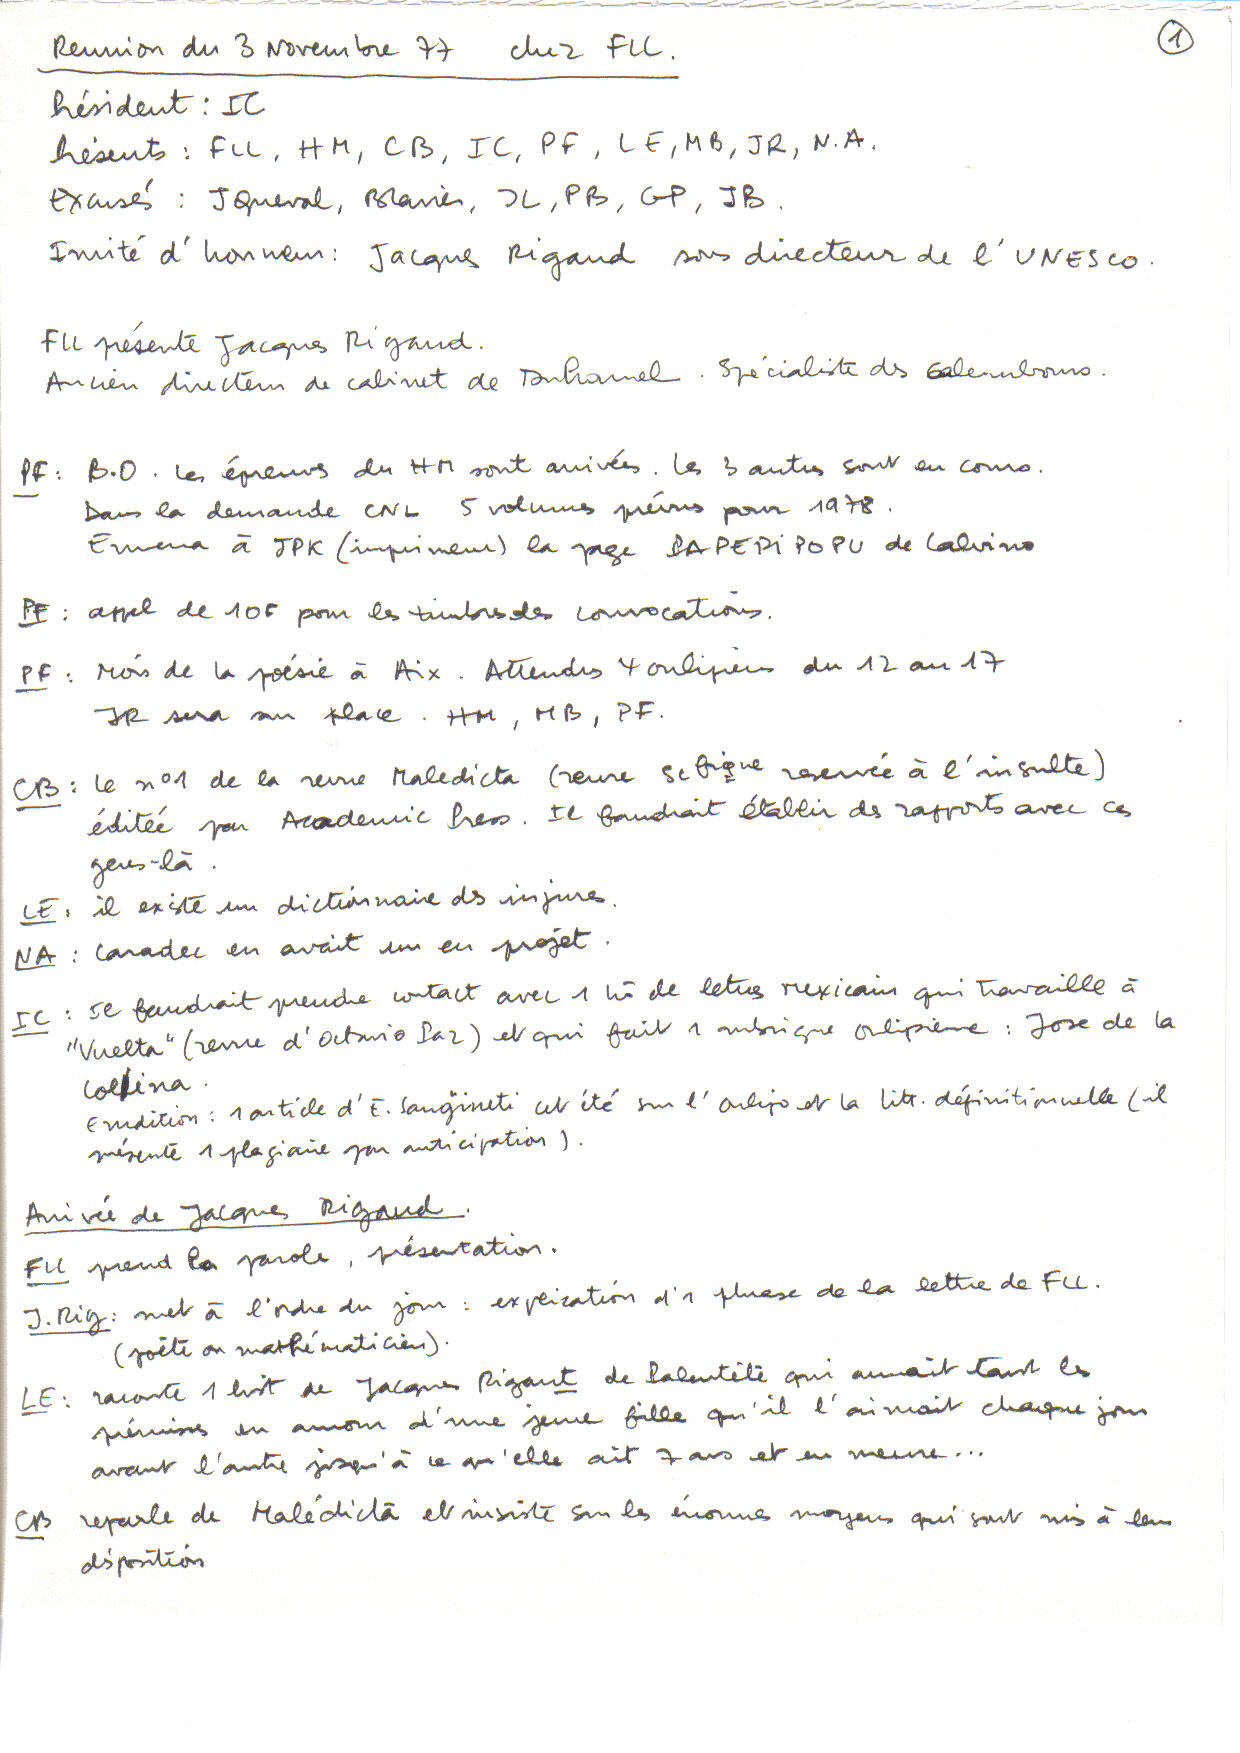 1
Reunion du 3 Novembre 77 chez FLL.
Président : IC
Présents : FLL, HM, CB, IC, PF, LE, MB, JR, N.A.
Excusés : JQueval, Blavier, JL, PB, GP, JB.
Invité d'honneur : Jacques Rigaud sous directeur de l'UNESCO.
FLL présente Jacques Rigaud.
Ancien directeur de cabinet de Duhamel. Spécialiste des calembours.
PF : B.O. Les épreuves du HM sont arrivées. Les 3 autres sont en cours.
Dans la demande CNL 5 volumes prévus pour 1978.
Enverra à JPK (imprimeur) la page PAPEPIPOPU de Calvino
PF : appel de 10F pour les timbres des convocations.
PF : Mois de la poésie à Aix. Attendus 4 oulipiens du 12 au 17
JR sera sur place. HM, MB, PF.
CB : Le n°1 de la revue Maledicta (revue reservée à l'insulte)
éditée par Academic Press. Il faudrait établir des rapports avec ces
gens-là.
LE : il existe un dictionnaire des injures.
NA : Caradec en avait un en projet.
IC : Il faudrait prendre contact avec 1 hô de lettres mexicain qui travaille à
"Vuelta" (revue d'Octavio Paz) et qui fait 1 rubrique oulipienne : Jose de la
Collina.
Erudition : 1 article d'E. Sanguineti cet été sur l'oulipo et la litt. définitionnelle (il
présente 1 plagiaire par anticipation).
Arrivée de Jacques Rigaud.
FLL prend la parole, présentation.
J.Rig : met à l'ordre du jour : explication d'1 phrase de la lettre de FLL.
(poète ou mathématicien).
LE : raconte 1 hist de Jacques Rigaut de qui aimait tant les
prémices en amour d'une jeune fille qu'il l'aimait chaque jour
avant l'autre jusqu'à ce qu'elle ait 7 ans et en meure...
CB reparle de Malédicta et insiste sur les énormes moyens qui sont mis à leur
disposition